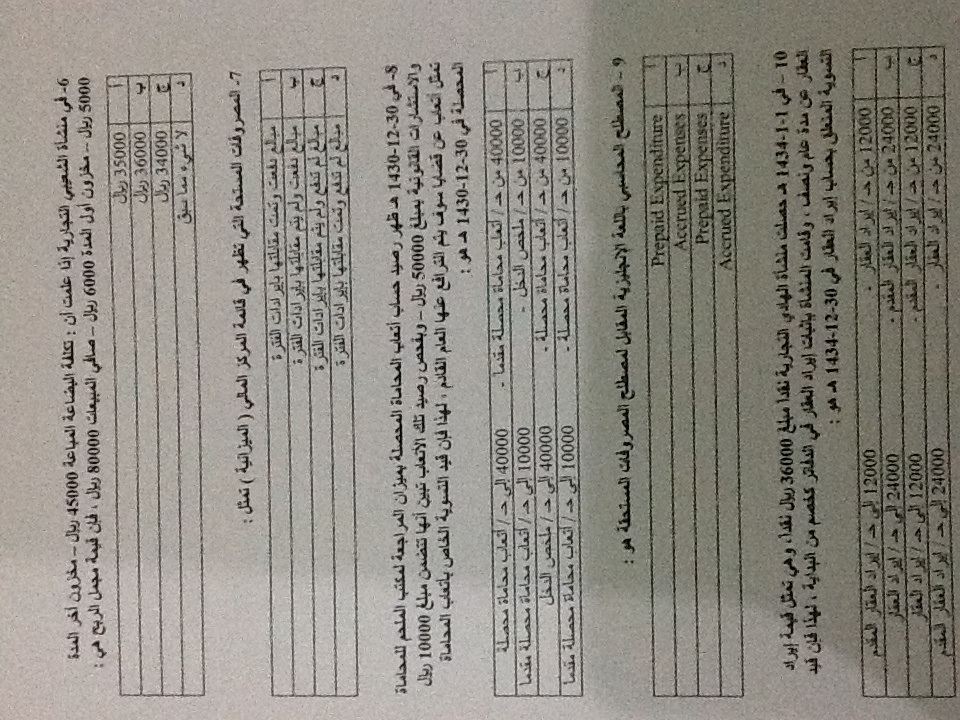 6- في منشأة الشعيبي التجارية إذا علمت أن : تكلفة البضاعة المباعة 45000 ريال – مخزون آخر المدة
5000 ريال – مخزون أول المدة 6000 ريال – صافي المبيعات 80000 ريال ، فإن قيمة مجمل الربح هي :
أ 35000 ريال
ب 36000 ريال
ج 34000 ريال
د لا شيء مما سبق
7- المصروفات المستحقة التي تظهر في قائمة المركز المالي ( الميزانية ) تمثل :
أ مبالغ دفعت وتمت مقابلتها بإيرادات الفترة
ب مبالغ دفعت ولم يتم مقابلتها بإيرادات الفترة
ج مبالغ لم تدفع ولم يتم مقابلتها بإيرادات الفترة
د مبالغ لم تدفع وتمت مقابلتها بإيرادات الفترة
8- في 30-12-1430 هـ ظهر رصيد حساب أتعاب المحاماة المحصلة بميزان المراجعة لمكتب الملحم للمحاماة
والاستشارات القانونية بمبلغ 50000 ريال – وبفحص رصيد تلك الأتعاب تبين أنها تتضمن مبلغ 10000 ريال
تمثل أتعاب عن قضايا سوف يتم الترافع عنها العام القادم ، لهذا فإن قيد التسوية الخاص بأتعاب المحاماة
المحصلة في 30-12-1430 هـ هو :
أ 40000 من حـ / أتعاب محاماة محصلة مقدما - 40000 إلى حـ / أتعاب محاماة محصلة
ب 10000 من حـ / ملخص الدخل - 10000 إلى حـ / أتعاب محاماة محصلة مقدما
ج 40000 من حـ / أتعاب محاماة محصلة - 40000 إلى حـ / ملخص الدخل
د 10000 من حـ / أتعاب محاماة محصلة - 10000 إلى حـ / أتعاب محاماة محصلة مقدما
9 – المصطلح المحاسبي باللغة الإنجليزية المقابل لمصطلح المصروفات المستحقة هو :
أ Prepaid Expenditure
ب Accrued Expenses
ج Prepaid Expenses
د Accrued Expenditure
10 – في 1-1-1434 هـ حصلت منشأة الهادي التجارية نقدا مبلغ 36000 ريال نقدا، وهي تمثل قيمة إيراد
العقار عن مدة عام ونصف ، وقامت المنشأة بإثبات إيراد العقار في الدفاتر كخصم من البداية ، لهذا فإن قيد
التسوية المتعلق بحساب إيراد العقار في 30-12-1434 هـ هو :
أ 12000 من حـ / إيراد العقار - 12000 إلى حـ / إيراد العقار المقدم
ب 24000 من حـ / إيراد العقار المقدم - 24000 إلى حـ / إيراد العقار
ج 12000 من حـ / إيراد العقار المقدم - 12000 إلى حـ / إيراد العقار
د 24000 من حـ / إيراد العقار - 24000 إلى حـ / إيراد العقار المقدم